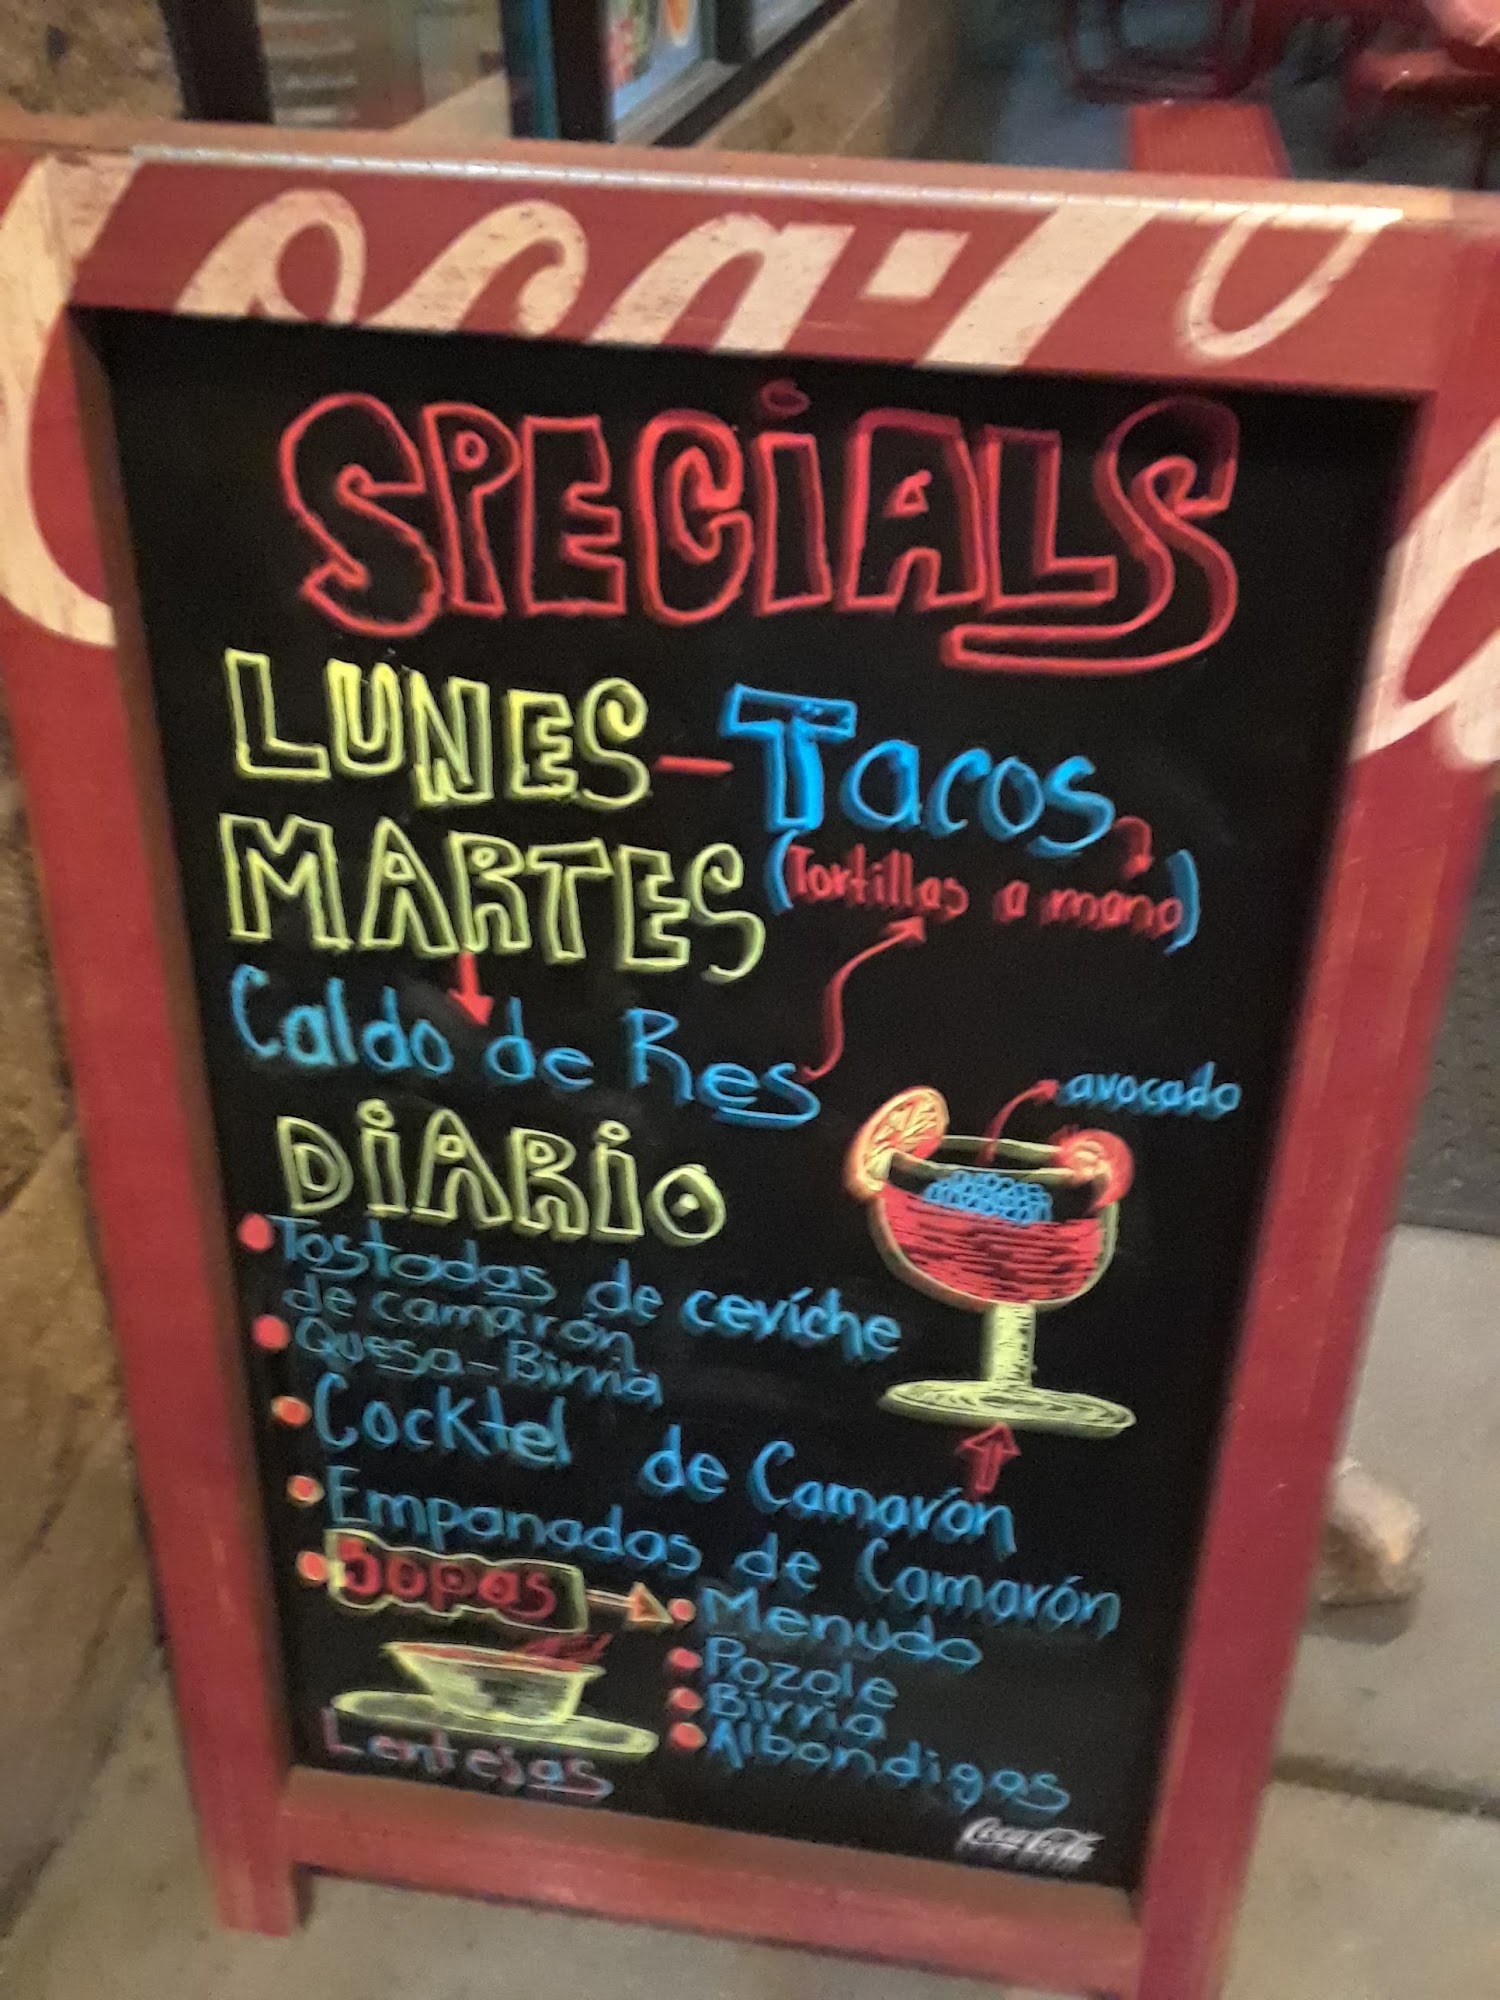 Coca-Co
SPECiALS
LUNES - Tacos
(Tortillas a mano)
MARTES
Caldo de Res
avocado
DiARiO
Tostadas de ceviche
de camarón
Quesa-Birria
Cocktel de Camarón
Empanadas de Camarón
Sopas
Menudo
Pozole
Birria
Albondigas
Lentejas
Coca-Cola